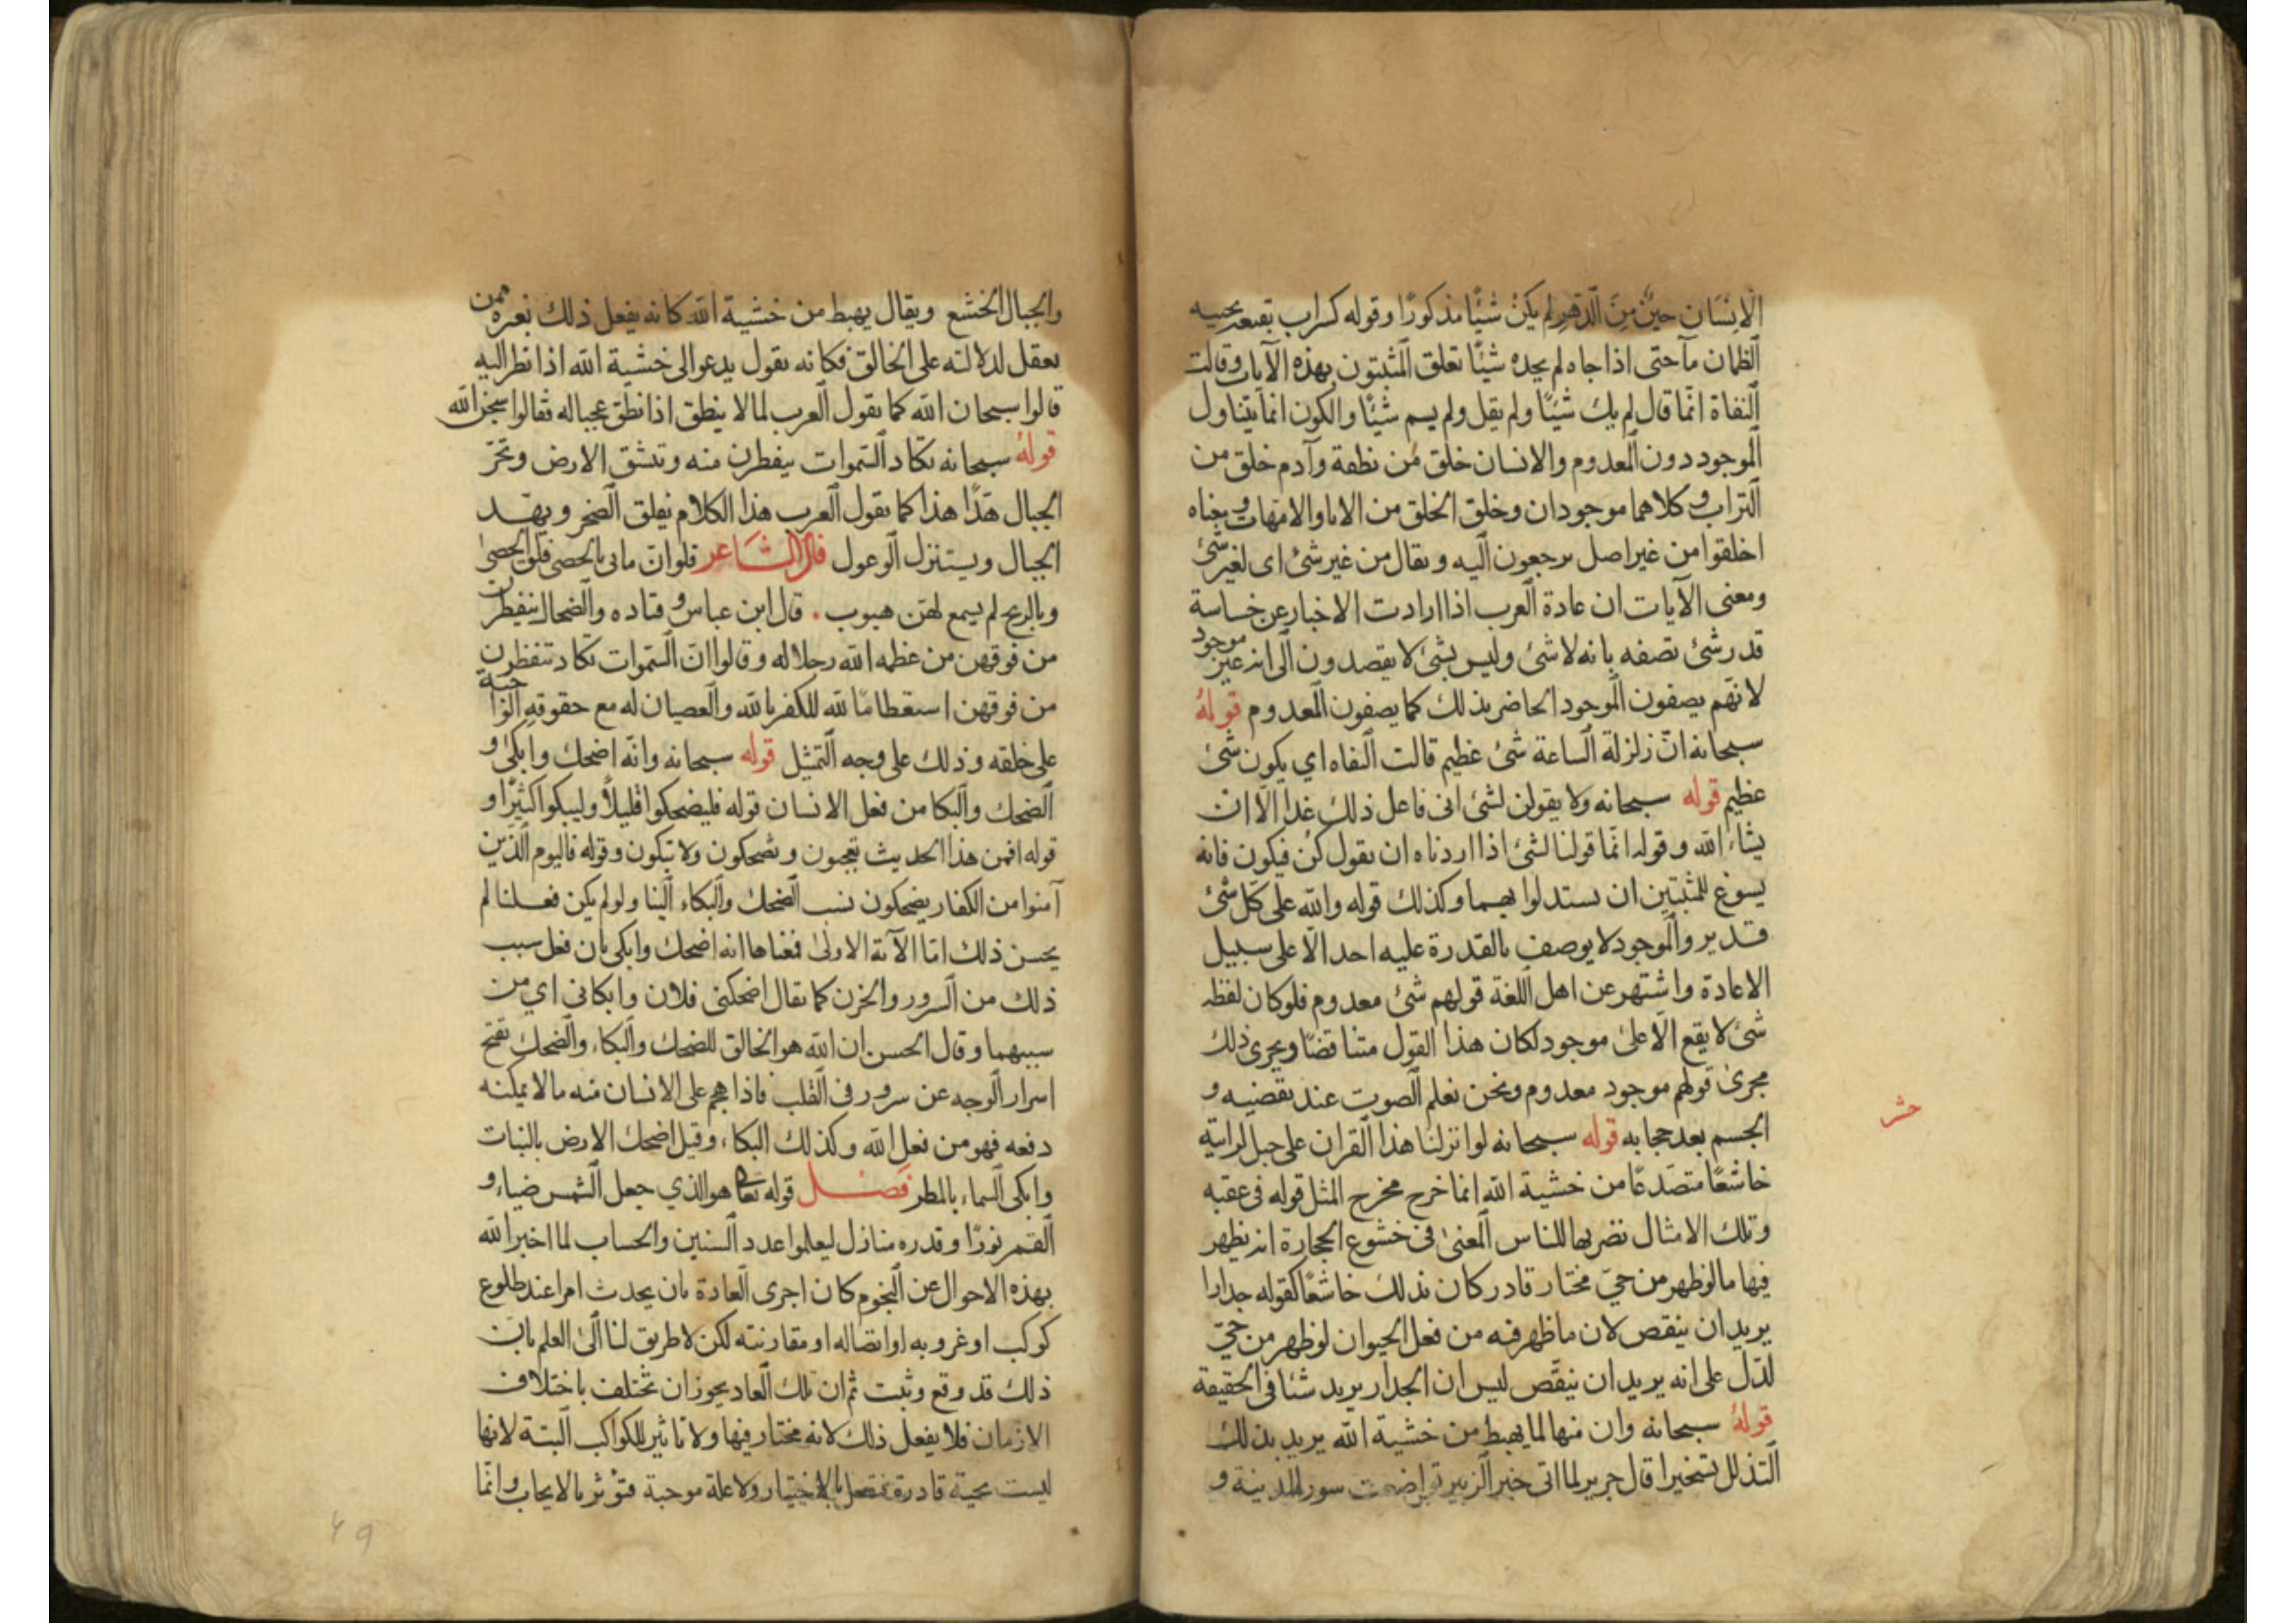 الْاِنْسَانِ حِيْنٌ مِنَ الَّدَهْرِ لم يكنْ شيْئًا مذكورًا وقوله كسراب بقيعة يحسبه
الظمان مآ حتى اذا جاه لم يجده شيْئًا تعلق المثبتون بهذه الآيات وقالت
النفاة انّما قال لم يك شيْئًا ولم يقل ولم يسم شيْئًا والكون انما يتناول
الموجود دون المعدوم والانسان خلق من نطفة وآدم خلق من
التراب وكلاهما موجودان وخلق الخلق من الابا والامهات ومعناه
اخلقوا من غير اصل يرجعون اليه ويقال من غير شئ اى لغير شئ
ومعنى الآيات ان عادة العرب اذا ارادت الاخبار عن خساسة
قدر شئ تصفه بانه لا شئ وليس بشئ لا يقصدون الى انه غير موجود
لانهم يصفون الموجود الحاضر بذلك كما يصفون المعدوم قوله
سبحانه انّ زلزلة الساعة شئ عظيم قالت النفاه اي يكون شئ
عظيم قوله سبحانه ولا يقولن لشئ انى فاعل ذلك غدا الّا ان
يشاء الله وقوله انّما قولنا لشئ اذا اردناه ان نقول كن فيكون فانه
يسوغ للمثبتين ان يستدلوا بهما وكذلك قوله والله على كل شئ
قدير والموجود لا يوصف بالقدرة عليه احد الّا على سبيل
الاعادة واشتهر عن اهل اللغة قولهم شئ معدوم فلو كان لفظه
شئ لا يقع الّا على موجود لكان هذا القول متناقضًا ويجرى ذلك
مجرى قولهم موجود معدوم ونحن نعلم الصوت عند تقضيه و
الجسم بعد حجابه قوله سبحانه لو انزلنا هذا القران على جبل لرايته
حشر
خاشعًا متصدعًا من خشية الله انما خرج مخرج المثل قوله فى عقبه
وتلك الامثال نضربها للناس المعنى فى خشوع الحجارة انه يظهر
فيها ما لو ظهر من حيّ مختار قادر كان بذلك خاشعًا كقوله جدارا
يريد ان ينقص لان ما ظهر فيه من فعل الحيوان لو ظهر من حيّ
لدّل على انه يريد ان ينقّص ليس ان الجدار يريد شئا فى الحقيقة
قوله سبحانه وان منها لما يهبط من خشية الله يريد بذلك
التذلل تسخيرا قال جرير لما اتى خبر الزبير تواضعت سور المدينة و
والجبال الخشع ويقال يهبط من خشية الله كانه يفعل ذلك بغيره ممن
يعقل لدلالته على الخالق فكانه يقول يدعو الى خشية الله اذا نظر اليه
قالوا سبحان الله كما يقول العرب لما لا ينطق اذا نطق عجبا له فقالوا سبحن الله
قوله سبحانه تكاد السموات يتفطرن منه وتنشق الارض وتخرّ
الجبال هدًّا هذا كما يقول العرب هذا الكلام يفلق الصخر ويهد
الجبال ويستنزل الوعول قال الشاعر فلو انّ مابى بالحصى فلق الحصى
وبالريح لم يسمع لهن هبوب . قال ابن عباس وقتاده والضحاك يتفطرن
من فوقهن من عظمه الله وجلاله وقالوا انّ السموات تكاد تتفطرن
من فوقهن استعظامًا لله للكفر بالله والعصيان له مع حقوقه الواجبة
على خلقه وذلك على وجه التمثيل قوله سبحانه وانّه اضحك وابكى و
الضحك والبكا من فعل الانسان قوله فليضحكوا قليلاً وليبكوا كثيرًا و
قوله افمن هذا الحديث تعجبون وتضحكون ولا تبكون وقوله فاليوم الّذين
آمنوا من الكفار يضحكون نسب الضحك والبكاء الينا ولو لم يكن فعلنا لم
يحسن ذلك امّا الآية الاولى فمعناها انه اضحك وابكى بان فعل سبب
ذلك من السرور والحزن كما يقال اضحكنى فلان وابكانى اي من
سببهما وقال الحسن ان الله هو الخالق للضحك والبكاء والضحك تفتح
اسرار الوجه عن سرور فى القلب فاذا هجم على الانسان منه ما لا يمكنه
دفعه فهو من فعل الله وكذلك البكاء وقيل اضحك الارض بالنبات
وابكى السماء بالمطر فصل قوله تعالى هو الذي جعل الشمس ضياء و
القمر نورًا وقدره منازل ليعلموا عدد السنين والحساب لما اخبر الله
بهذه الاحوال عن النجوم كان اجرى العادة بان يحدث امرا عند طلوع
كوكب او غروبه او اتصاله او مقارنته لكن لا طريق لنا الى العلم بان
ذلك قد وقع وثبت ثم ان تلك العاد يجوز ان تختلف باختلاف
الازمان فلا يفعل ذلك لانه مختار فيها ولا تاثير للكواكب البتة لانها
ليست بحية قادرة فتفعل بالاختيار ولا علة موجبة فتؤثر بالايجاب وانّما
49